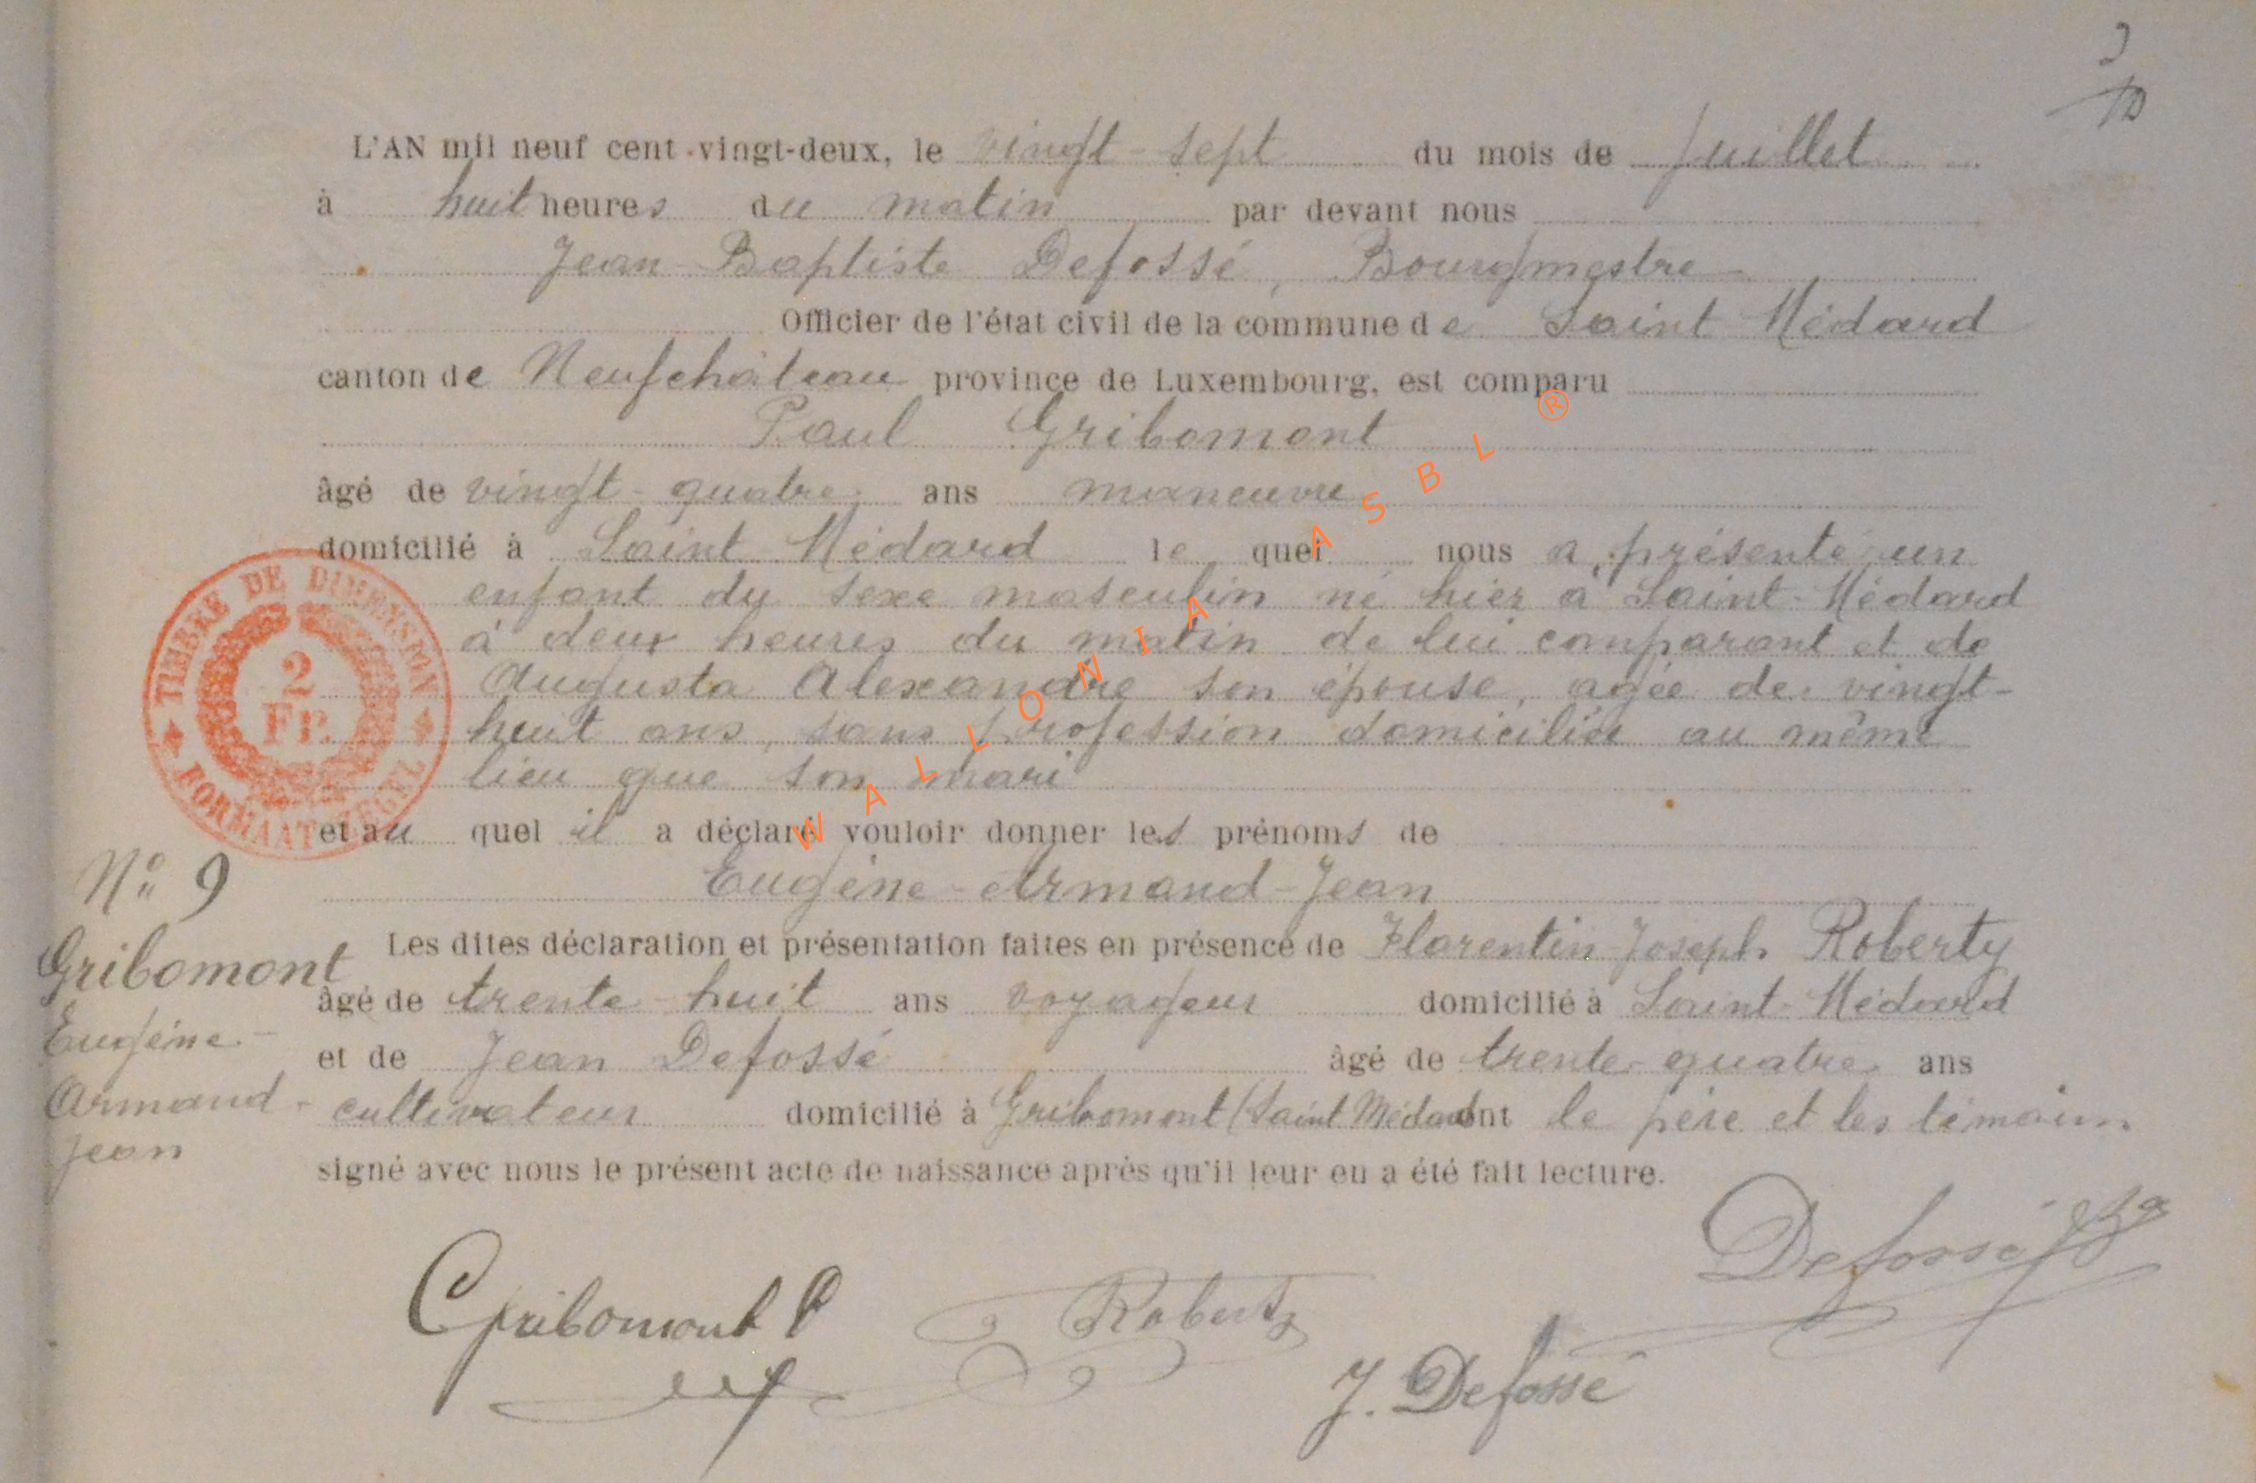 L'AN mil neuf cent vingt-deux, le vingt-sept du mois de Juillet
à huit heures du matin par devant nous
Jean Baptiste Defossé, Bourgmestre
Officier de l'état civil de la commune de Saint Médard
canton de Neufchâteau province de Luxembourg, est comparu
Paul Gribomont
âgé de vingt-quatre ans maneuvre
domicilié à Saint Médard le quel nous a présenté un
enfant du sexe masculin né hier à Saint-Médard
à deux heures du matin de lui comparant et de
Augusta Alexandre son épouse, agée de vingt-
huit ans, sans profession domiciliée au même
lieu que son mari
et au quel il a déclaré vouloir donner les prénoms de
Eugène-Armand-Jean
Les dites déclaration et présentation faites en présence de Florentin Joseph Roberty
âgé de trente-huit ans voyageur domicilié à Saint-Médard
et de Jean Defossé âgé de trente-quatre ans
cultivateur domicilié à Gribomont (Saint Médard) ont le père et les témoins
signé avec nous le présent acte de naissance après qu'il leur en a été fait lecture.
N° 9
Gribomont
Eugène-
Armand-
Jean
TIMBRE DE DIMENSION
2
FR.
FORMAAT ZEGEL
Gribomont P
Roberty
Defossé
J. Defossé
WALLONIA ASBL ®